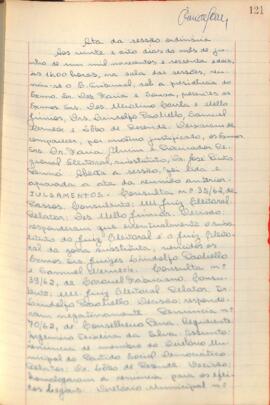 121
Ata da sessão ordinária
Aos vinte e oito dias do mês de ju-
nho de um mil novecentos e sessenta e dois,
às 14,00 horas, na sala das sessões, reuniu-
se o E. Tribunal, sob a presidência do
Exmo. Sr. Des. Faria e Sousa, presentes os
Exmos. Srs. Des. Merolino Corrêa e Mello
Júnior, Drs. Lindolfo Paoliello, Samuel
Werneck e Lôbo de Resende. Deixaram de
comparecer, por motivo justificado, os Exmos.
Srs. Dr. Faria, e Procurador Re-
gional Eleitoral, substituto, Dr. José
Aberta a sessão, foi lida e
aprovada a ata da reunião anterior.
JULGAMENTOS. Consulta nº 35/62, de
Passos. Consulente: MM. Juiz Eleitoral.
Relator: Des. Mello Júnior. Decisão:
responderam que eventualmente o subs-
tituto do Juiz Eleitoral é o Juiz Eleito-
ral da zona substituta, vencidos os
Exmos. Srs. Juízes Lindolfo Paoliello
e Samuel Werneck. Consulta nº
39/62, de Coronel Fabriciano. Consu-
lente: MM. Juiz Eleitoral. Relator: Dr.
Lindolfo Paoliello. Decisão: respond-
eram negativamente. Renúncia nº
70/62, de Conselheiro Pena. Requerente:
Teixeira da Silva. Assunto:
renúncia de membro do Diretório Mu-
nicipal do Partido Social Democrático.
Relator: Dr. Lôbo de Resende. Decisão:
homologaram a renúncia para os efei-
tos legais. Diretório Municipal nº